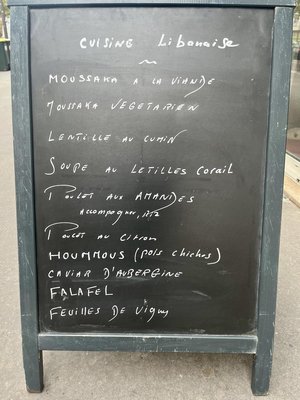 CUISINE Libanaise
MOUSSAKA A LA VIANDE
MOUSSAKA VEGETARIEN
LENTILLE AU CUMIN
SOUPE AU LETILLES CORAIL
POULET AUX AMANDES
Accompagner, Riz
POULET AU CITRON
HOUMMOUS (pois chiches)
CAVIAR D'AUBERGINE
FALAFEL
FEUILLES DE Vignes